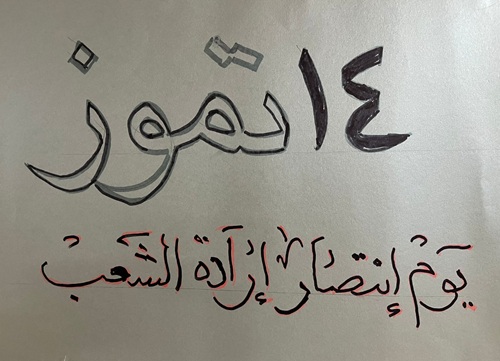 ١٤ تموز
يَومُ إنتصَار إرَادة الشَعب